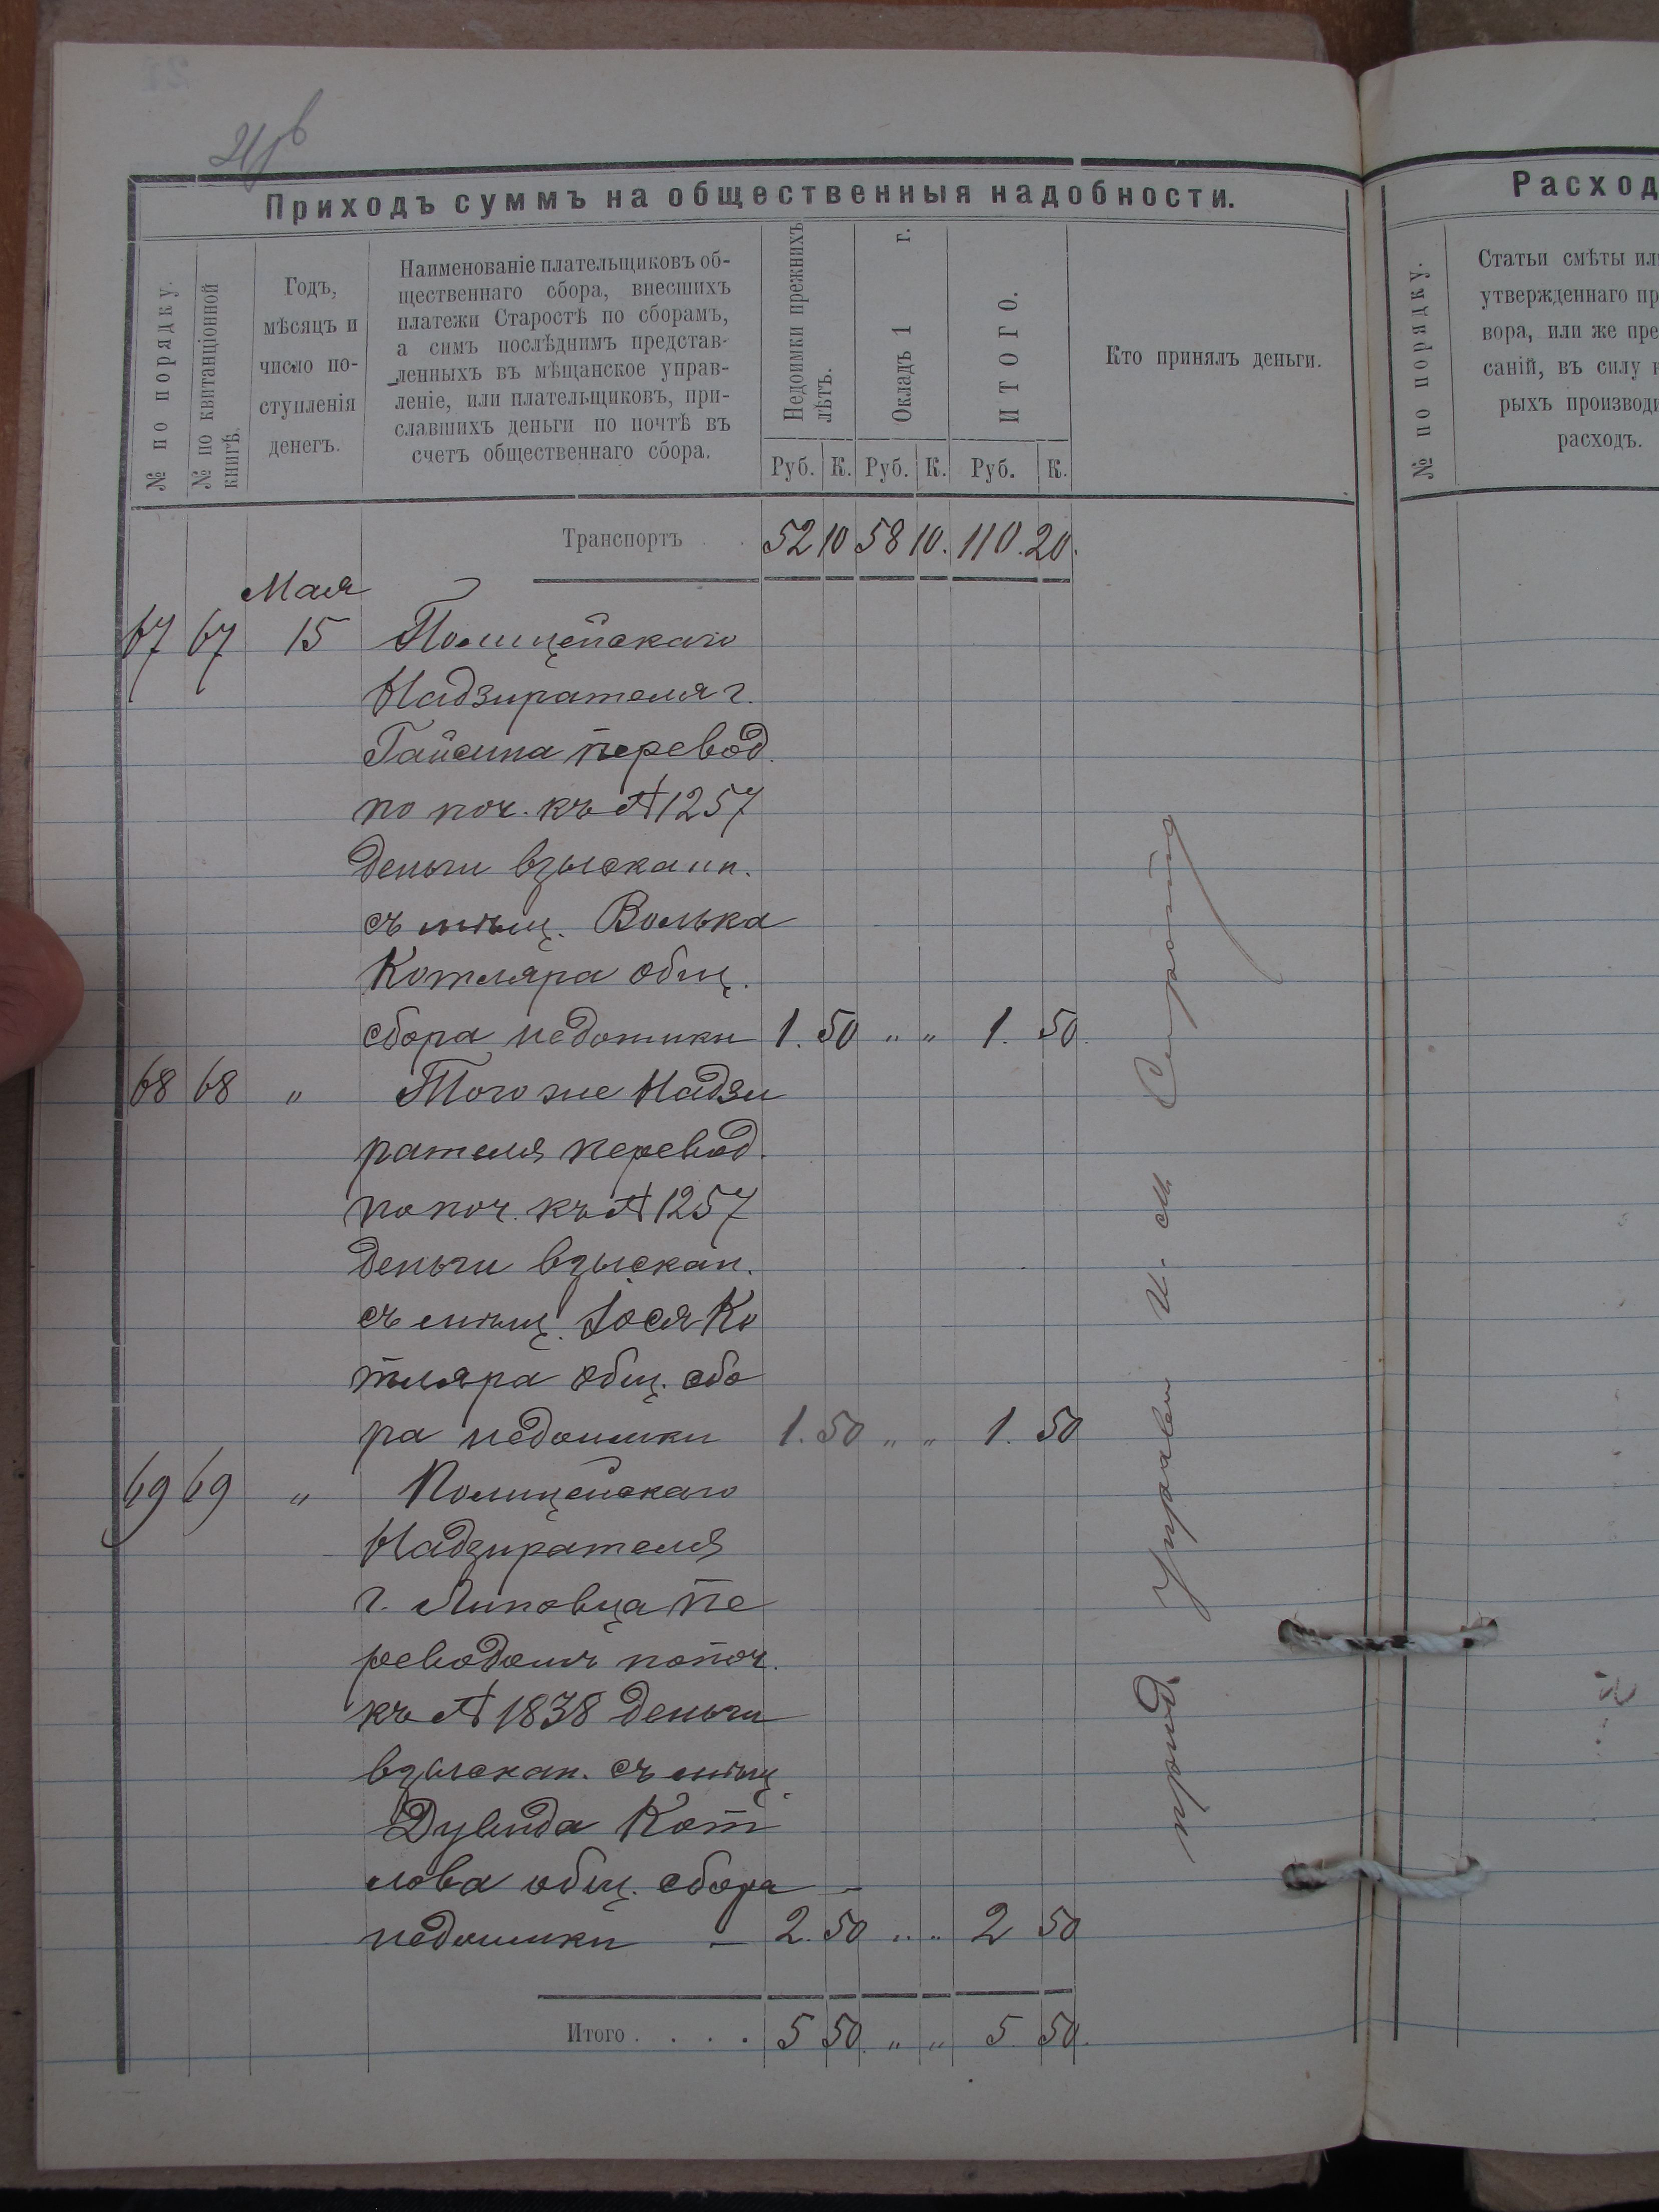 21 об
Приходъ суммъ на общественныя надобности.
№ по порядку.
№ по квитанціонной книгѣ.
Годъ,
мѣсяцъ и
число по-
ступленія
денегъ.
Наименованіе плательщиковъ об-
щественнаго сбора, внесшихъ
платежи Старостѣ по сборамъ,
а симъ послѣднимъ представ-
ленныхъ въ мѣщанское управ-
леніе, или плательщиковъ, при-
славшихъ деньги по почтѣ въ
счетъ общественнаго сбора.
Недоимки прежнихъ лѣтъ.
Окладъ 1 г.
ИТОГО.
Руб. К. Руб. К. Руб. К.
Кто принялъ деньги.
Транспортъ . . 52 10 58 10. 110. 20.
Мая
67 67 15 Полицейскаго
Надзирателя г.
Гайсина перевод.
по поч. къ № 1257
деньги взыскан.
съ мѣщ. Волька
Котляра общ.
сбора недоимки 1. 50 " " 1. 50.
68 68 " Того же Надзи
рателя перевод.
по поч. къ № 1257
деньги взыскан.
съ мѣщ. Іося Ко
тляра общ. сбо
ра недоимки 1. 50 " " 1. 50
69 69 " Полицейскаго
Надзирателя
г. Липовца пе
реводомъ по поч.
къ № 1838 деньги
взыскан. съ мѣщ.
Дувида Кот
лова общ. сбора –
недоимки – 2. 50 " " 2 50
Итого . . . . 5 50. " " 5. 50.
Управля
Расход
№ по порядку.
Статьи смѣты ил
утвержденнаго пр
вора, или же пре
саній, въ силу к
рыхъ производи
расходъ.